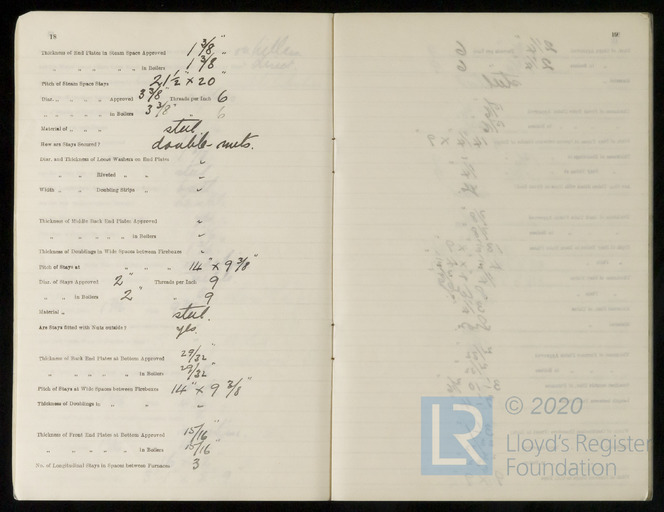 18
Thickness of End Plates in Steam Space Approved 1 3/8"
" " " " " in Boilers 1 3/8"
Pitch of Steam Space Stays 21 1/2" x 20"
Diar. " " " " Approved 3 3/8" Threads per Inch 6
" " " " in Boilers 3 3/8" " 6
Material of " " " steel
How are Stays Secured? double-nuts.
Diar. and Thickness of Loose Washers on End Plates "
" " Riveted " " "
Width " " Doubling Strips " "
Thickness of Middle Back End Plates Approved "
" " " " " in Boilers "
Thickness of Doublings in Wide Spaces between Fireboxes "
Pitch of Stays at " " " " 14" x 9 3/8"
Diar. of Stays Approved 2" Threads per Inch 9
" " in Boilers 2" " 9
Material " steel.
Are Stays fitted with Nuts outside? yes.
Thickness of Back End Plates at Bottom Approved 29/32"
" " " " " in Boilers 29/32"
Pitch of Stays at Wide Spaces between Fireboxes 14" x 9 3/8"
Thickness of Doublings in " " "
Thickness of Front End Plates at Bottom Approved 15/16"
" " " " " in Boilers 15/16"
No. of Longitudinal Stays in Spaces between Furnaces 3
LR
© 2020
Lloyd's Register
Foundation